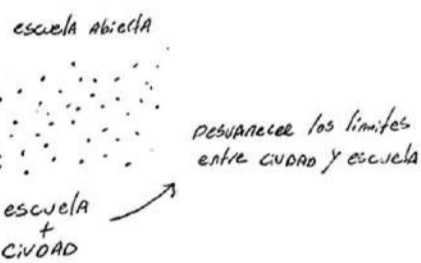 escuela abierta
desvanecer los límites
entre ciudad y escuela
escuela
+
ciudad